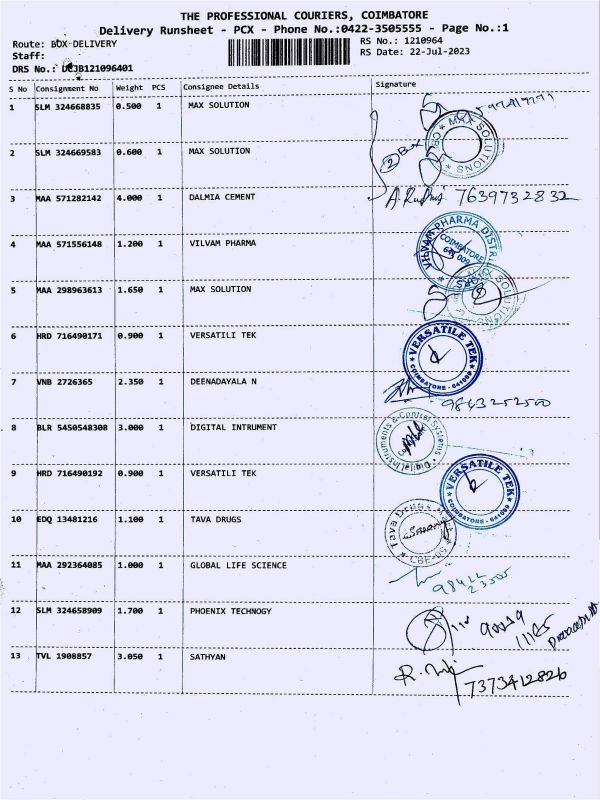 THE PROFESSIONAL COURIERS, COIMBATORE
Delivery Runsheet - PCX - Phone No.:0422-3505555 - Page No.:1
Route: BOX-DELIVERY
RS No.: 1210964
Staff:
RS Date: 22-Jul-2023
DRS No.:
S No Consignment No Weight PCS Consignee Details Signature
1 SLM 324668835 0.500 1 MAX SOLUTION
MAX SOLUTIONS
2 SLM 324669583 0.600 1 MAX SOLUTION
2 Box
3 MAA 571282142 4.000 1 DALMIA CEMENT 7639732832
4 MAA 571556148 1.200 1 VILVAM PHARMA
VILVAM PHARMA DISTRI
COIMBATORE
5 MAA 298963613 1.650 1 MAX SOLUTION
SOLUTIONS
6 HRD 716490171 0.900 1 VERSATILI TEK
VERSATILE TEK
COIMBATORE - 641009
7 VNB 2726365 2.350 1 DEENADAYALA N
9843252500
8 BLR 5450548308 3.000 1 DIGITAL INTRUMENT
Digital Instruments & Control Systems
9 HRD 716490192 0.900 1 VERSATILI TEK
VERSATILE TEK
COIMBATORE - 641009
10 EDQ 13481216 1.100 1 TAVA DRUGS
Tava Drugs
11 MAA 292364085 1.000 1 GLOBAL LIFE SCIENCE
98422
23505
12 SLM 324658909 1.700 1 PHOENIX TECHNOGY
13 TVL 1908857 3.050 1 SATHYAN
7373412826